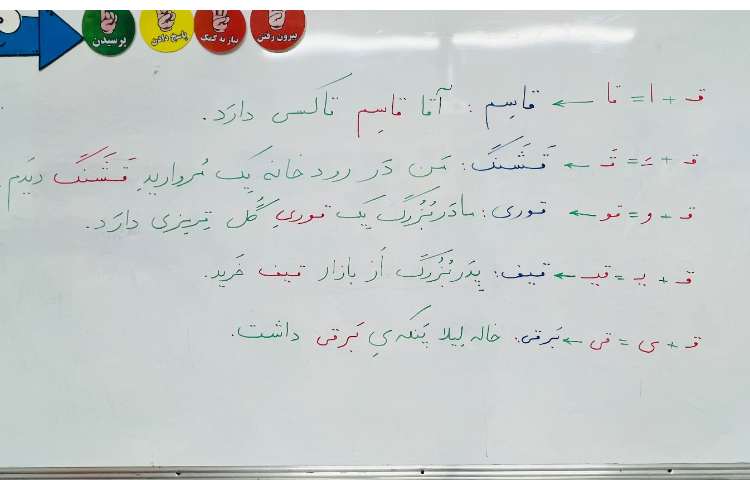 پرسیدن پاسخ دادن نیاز به کمک بیرون رفتن
قـ + ا = قا ← قاسِم : آقا قاسِم تاکسی دارَد.
قـ + ـَـ = قَـ ← قَشَنگ : مَن دَر رودخانه یِک مُرواریدِ قَشَنگ دیدَم.
قـ + و = قو ← قوری : مادَربُزُرگ یِک قوریِ گُل قِرمِزی دارَد.
قـ + یـ = قیـ ← قیف : پِدَربُزُرگ اَز بازار قیف خَرید.
قـ + ی = قی ← بَرقی : خاله لِیلا پَنکه‌یِ بَرقی داشت.